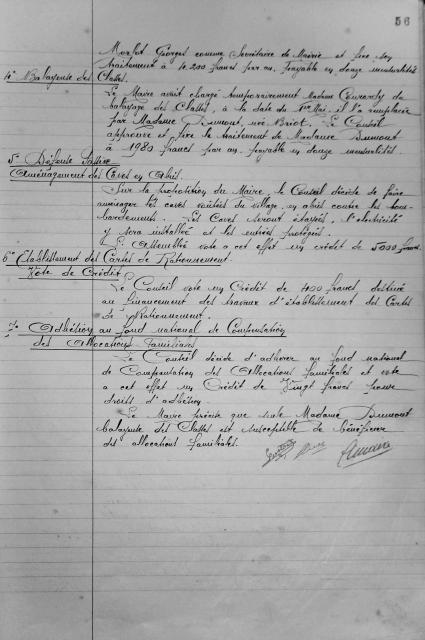 56
Georges comme Secrétaire de Mairie et fixe son
traitement à 4.200 francs par an, payable en douze mensualités
4° Balayeuse des Classes.
Le Maire avait chargé temporairement Madame
balayage des Classes, à la date du 1er Mai, il l'a remplacée
par Madame Dumont, née Briot. Le Conseil
approuve et fixe le traitement de Madame Dumont
à 1980 francs par an, payable en douze mensualités.
5° Défense Passive
Aménagement des Caves en Abri.
Sur la proposition du Maire, le Conseil décide de faire
aménager les caves voûtées du village, en abri contre les bom-
bardements. Les Caves seront étayées, l'électricité
y sera installée et les entrées protégées.
L'Assemblée vote à cet effet un crédit de 5000 francs.
6° Etablissement des Cartes de Rationnement.
Vote de Crédit.
Le Conseil vote un Crédit de 400 francs, destiné
au financement des travaux d'établissement des Cartes
de Rationnement.
7° Adhésion au fond national de Compensation
des Allocations Familiales
Le Conseil décide d'adhérer au fond national
de Compensation des Allocations familiales et vote
à cet effet un Crédit de Vingt francs pour
droits d'adhésion.
Le Maire précise que seule Madame Dumont
balayeuse des Classes est susceptible de bénéficier
des allocations familiales.